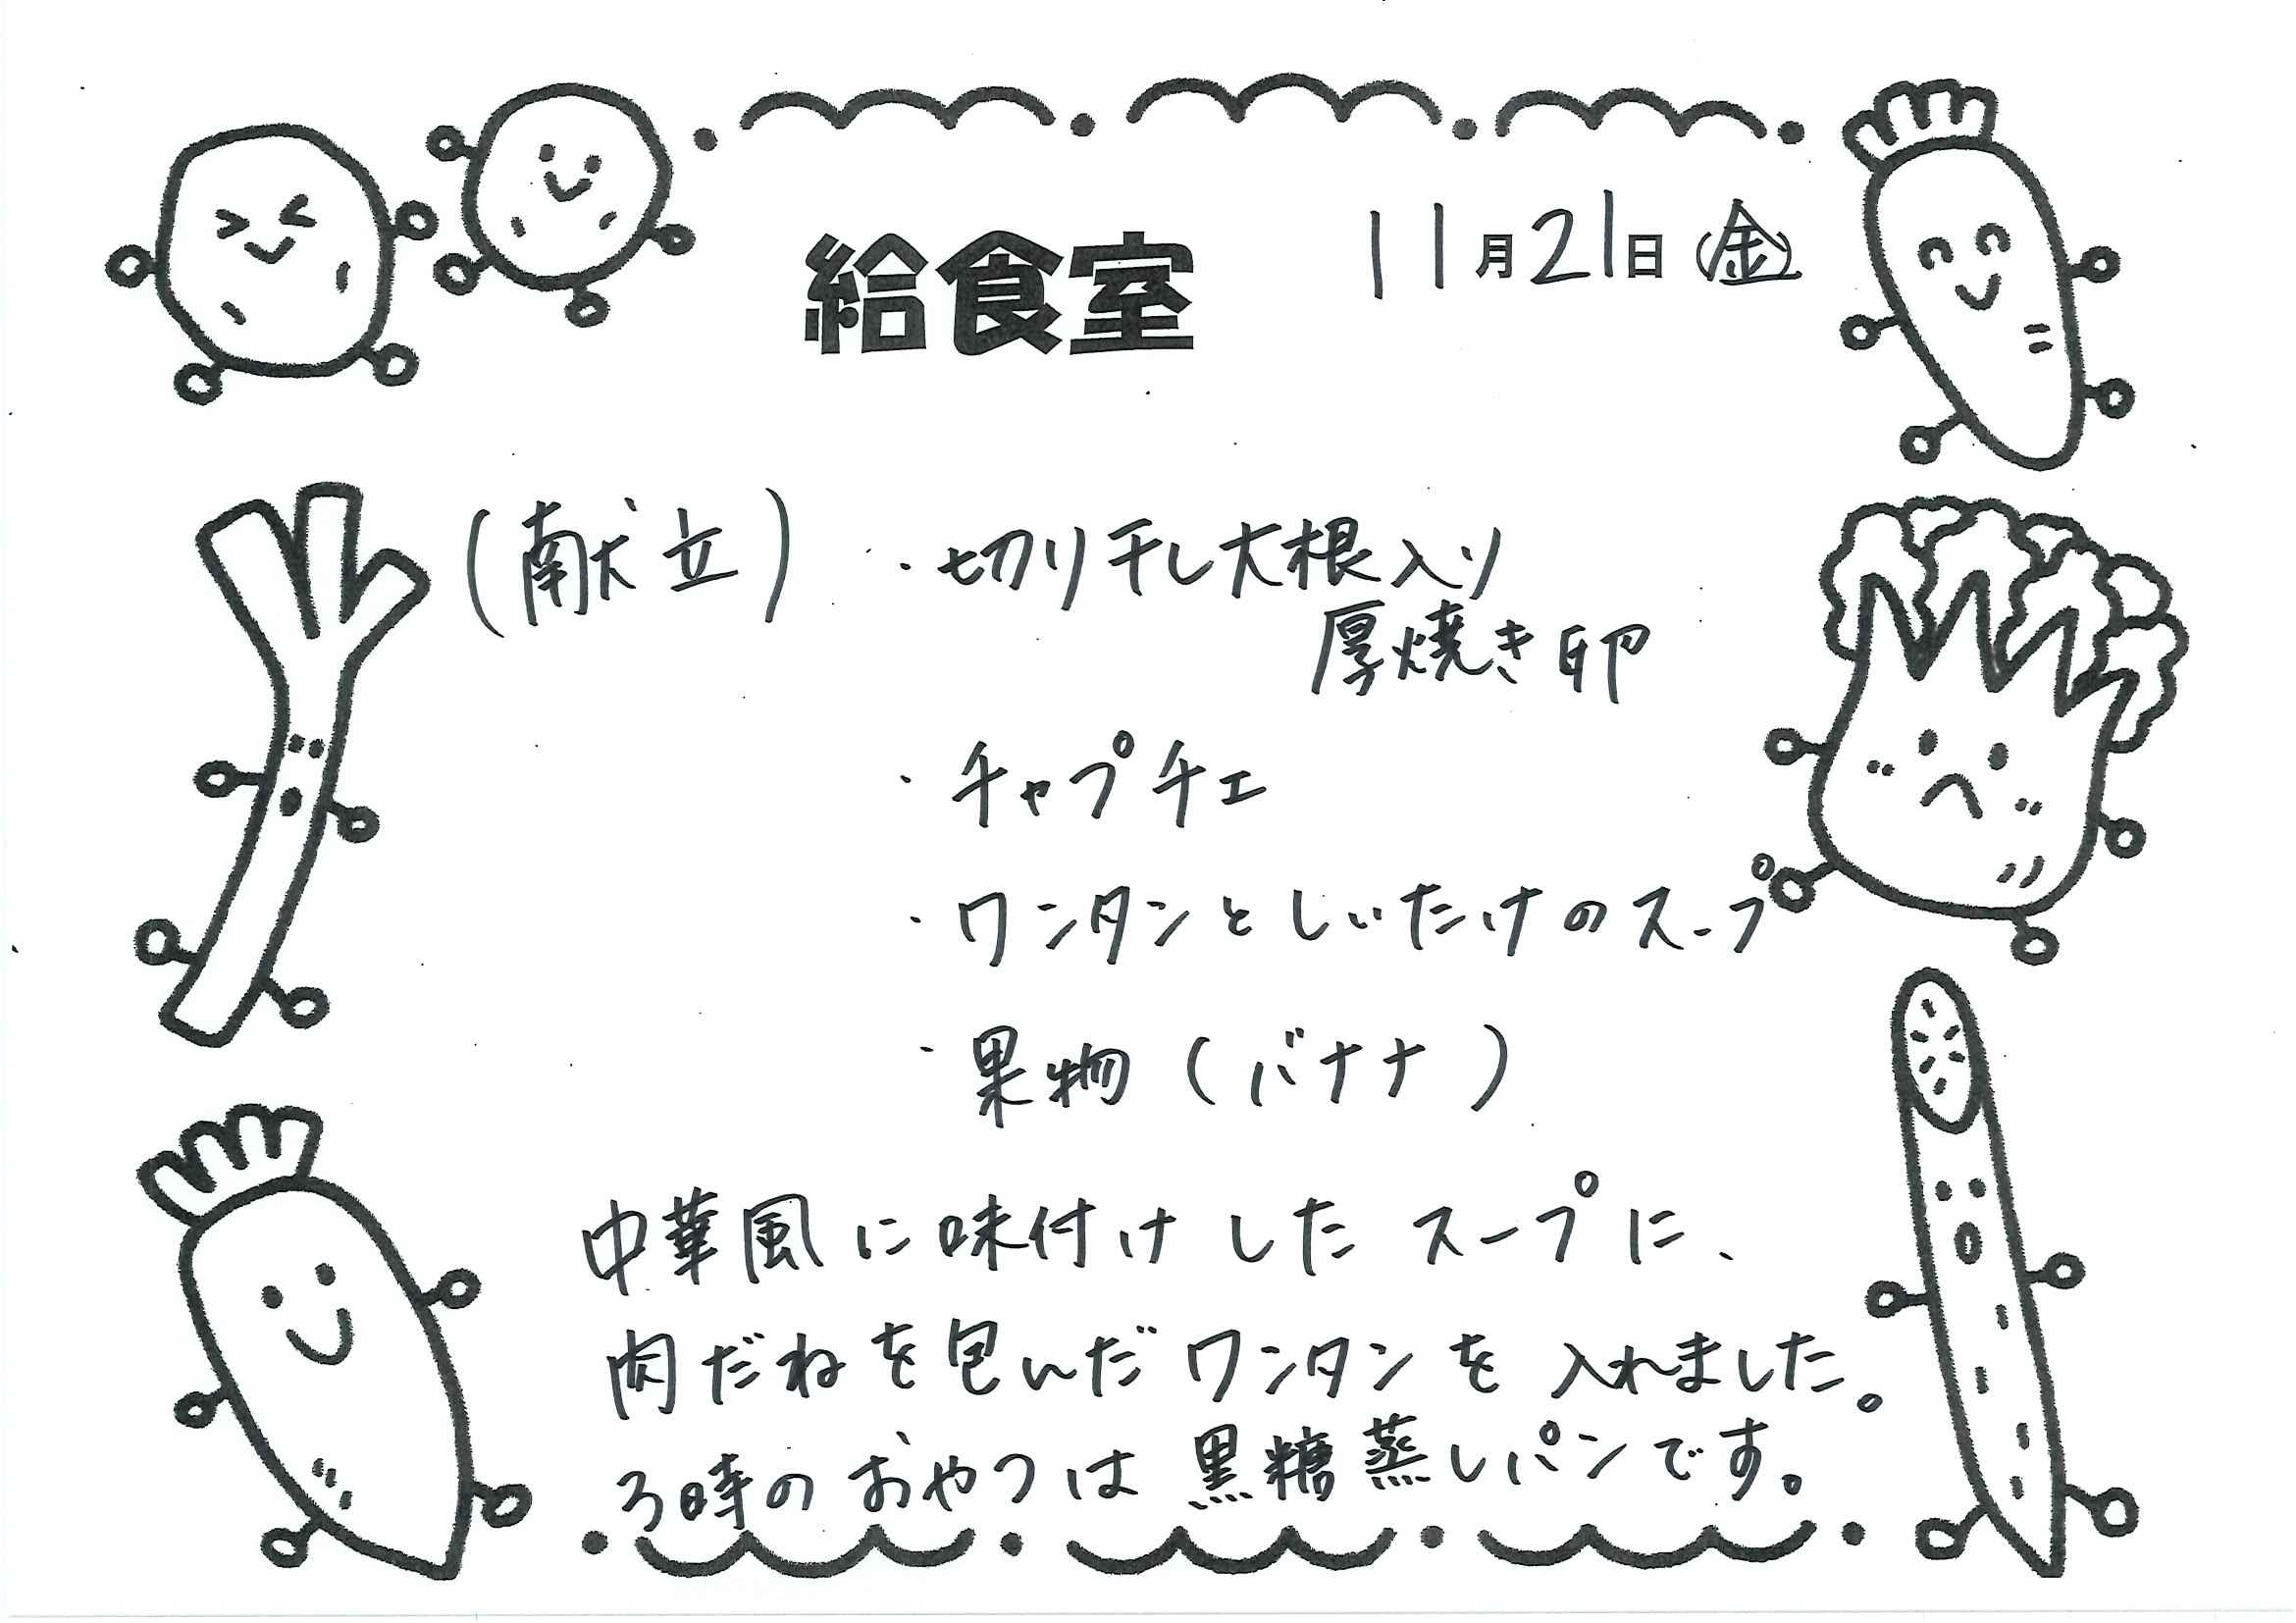 給食室
11月21日(金)
(献立)・切り干し大根入り
厚焼き卵
・チャプチェ
・ワンタンとしいたけのスープ
・果物(バナナ)
中華風に味付けしたスープに、
肉だねを包んだワンタンを入れました。
3時のおやつは黒糖蒸しパンです。